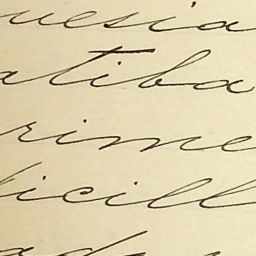 uesia
atiba
rime
icill